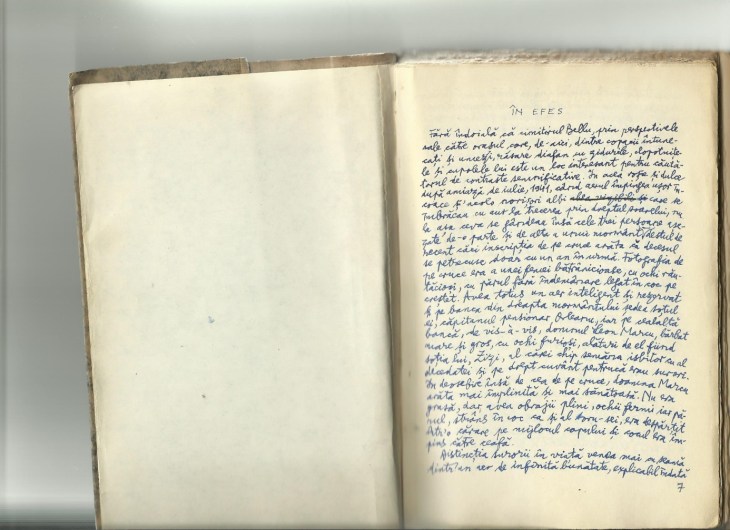 ÎN EFES
Fără îndoială că cimitirul Bellu, prin perspectivele
sale către orașul, care, de-aici, dintre copacii întune-
cați și unceși, răsare diafan cu zidurile, clopotnite-
le și cupolele lui este un loc interesant pentru căută-
torul de contraste semnificative. În acea roșe și dulce
după amiază de iulie, 1941, când aerul împingea ușor în-
coace și 'ncolo norișori albi și care se
îmbrăcau cu aur la trecerea prin dreptul soarelui, nu
la asa ceva se gândeau însă cele trei persoane ase-
zate de-o parte și de alta a unui mormânt, destul de
recent căci inscripția de pe cruce arăta că decesul
se petrecuse doar cu un an în urmă. Fotografia de
pe cruce era a unei femei bătrânicioase, cu ochi rău-
tăcioși, cu părul fără îndemânare legat în coc pe
creștet. Avea totuș un aer inteligent și rezervat
și pe banca din dreapta mormântului ședea soțul
ei, căpitanul pensionar, iar pe cealaltă
bancă, de vis-à-vis, domnul Leon Marcu, bărbat
mare și gros, cu ochi furioși, alături de el fiind
soția lui, Zizi, al cărei chip semăna izbitor cu al
decedatei și pe drept cuvânt pentrucă erau surori.
În deosebire însă de cea de pe cruce, doamna Marcu
arăta mai împlinită și mai sănătoasă. Nu era
grasă, dar avea obrajii plini, ochii fermi iar pă-
rul, strâns în coc ca și al soru-sei, era despărțit
într'o cărare pe mijlocul capului și cocul era îm-
pins către ceafă.
Distincția surorii în viață venea mai cu seamă
dintr'un aer de infinită bunătate, explicabil îndată
7